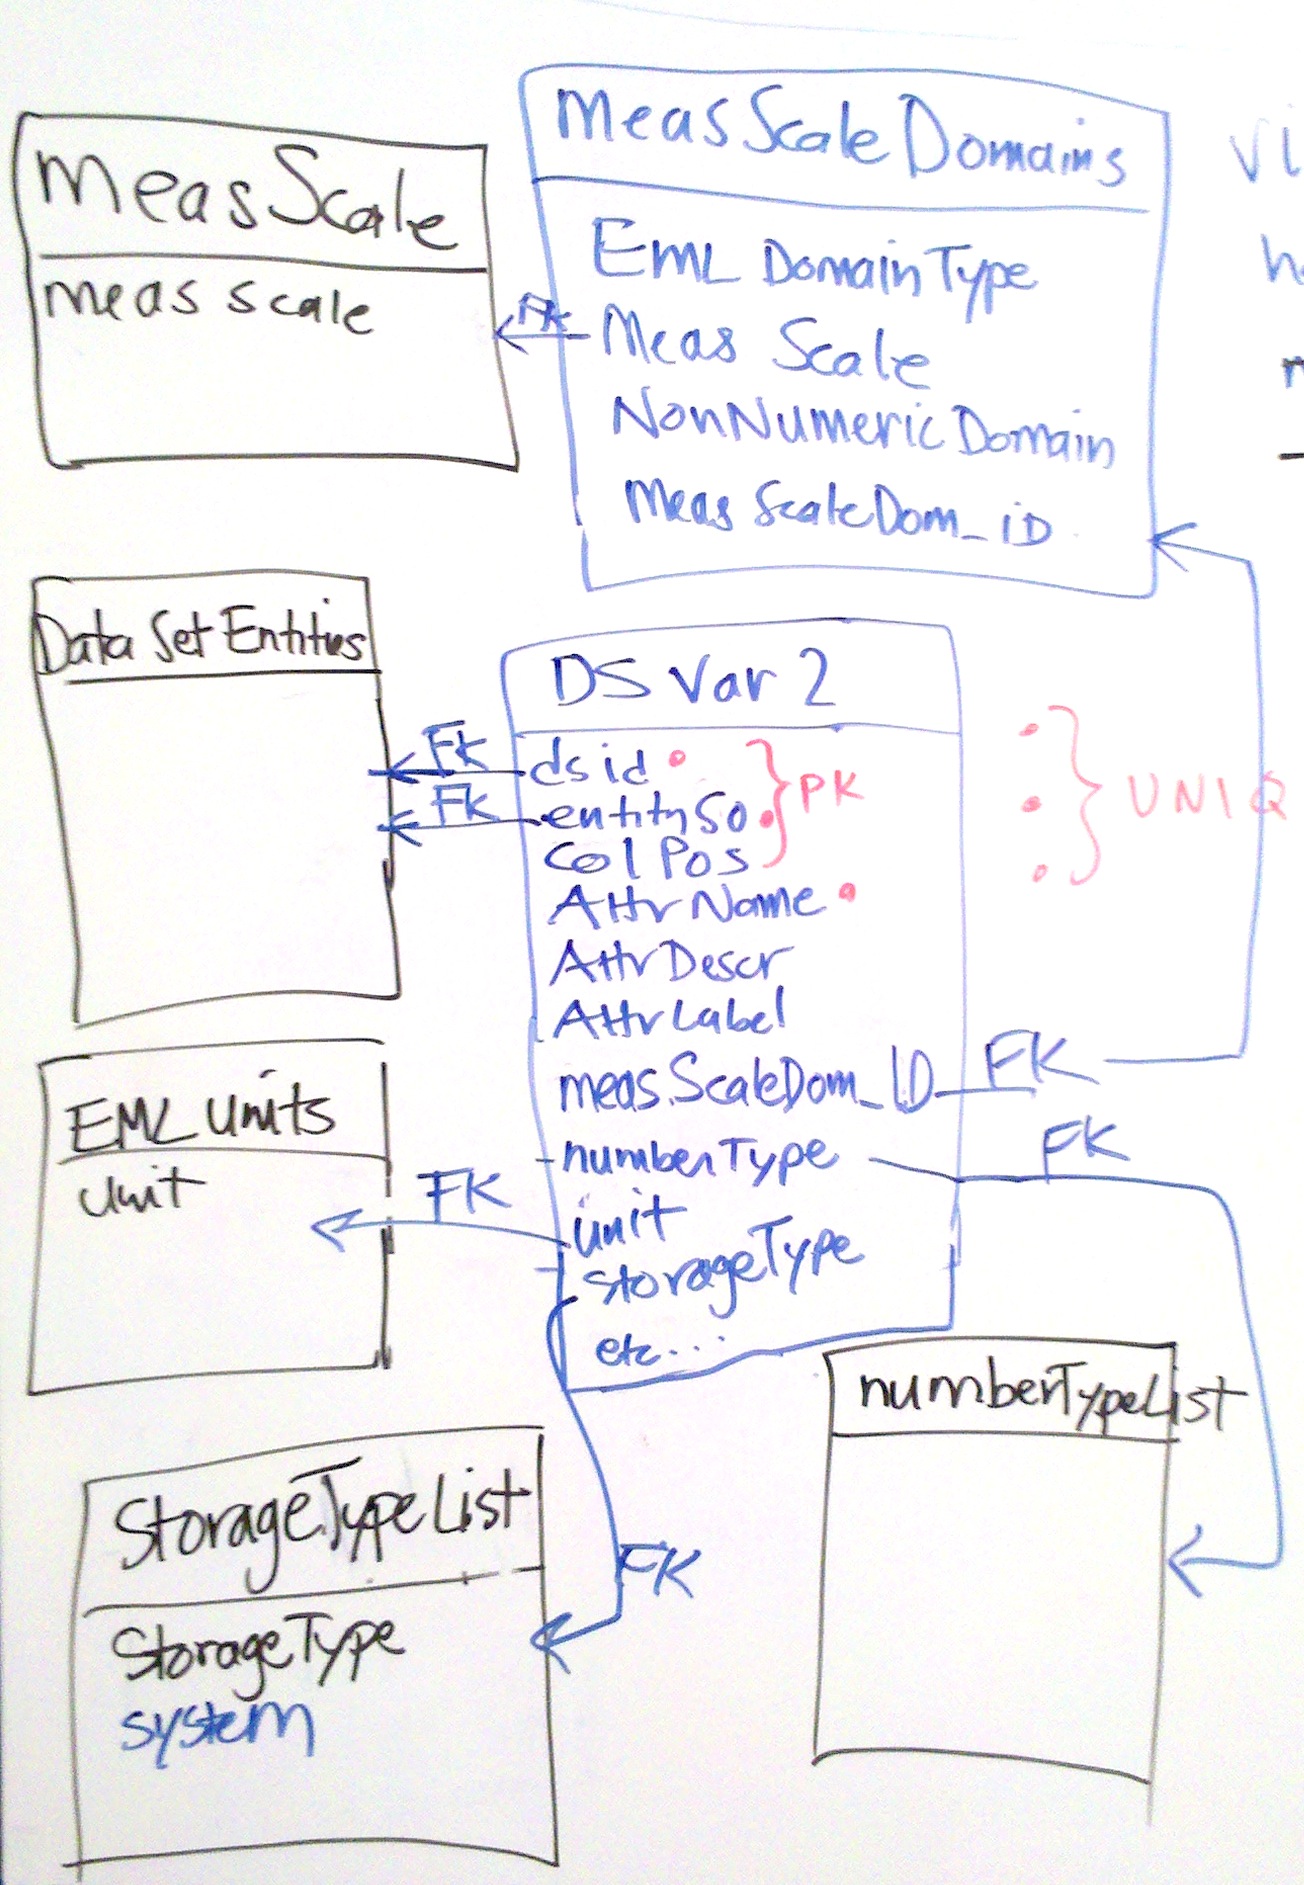 MeasScale
meas scale
MeasScaleDomains
EML DomainType
FK
Meas Scale
NonNumericDomain
Meas ScaleDom_iD
DataSetEntities
DS Var 2
FK
dsid
FK
entitySo
ColPos
PK
UNIQ
AttrName
AttrDescr
AttrLabel
measScaleDom_ID
FK
numberType
FK
unit
FK
storageType
etc...
EML Units
unit
StorageTypeList
StorageType
system
FK
numberTypeList